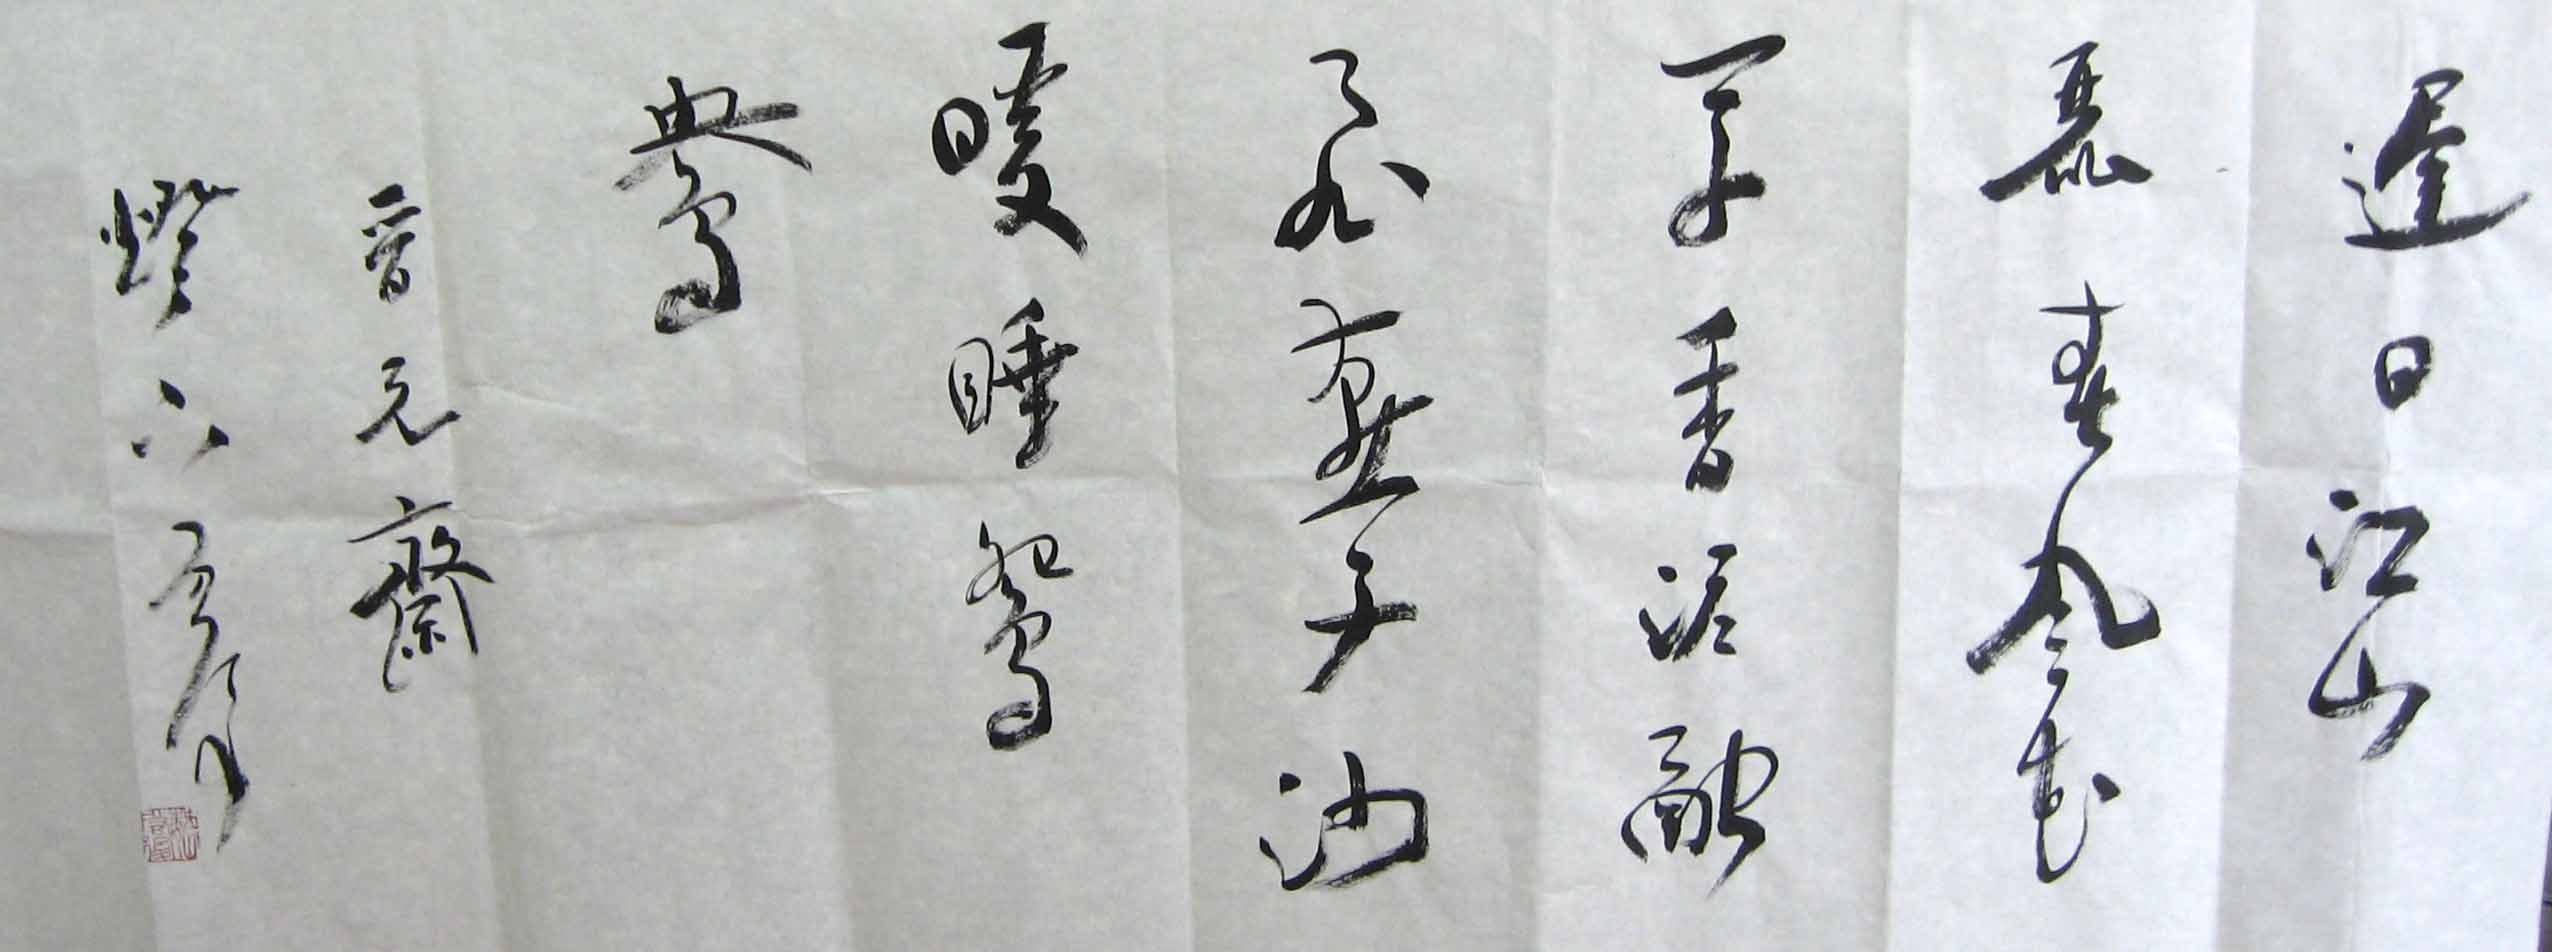 遲日江山
麗春風花
草香泥融
飛燕子沙
暖睡鴛
鴦
晉元齋
燈下